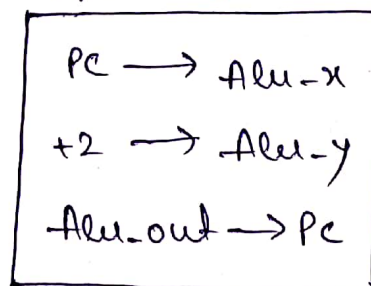 PC → Alu-x
+2 → Alu-y
Alu-out → PC